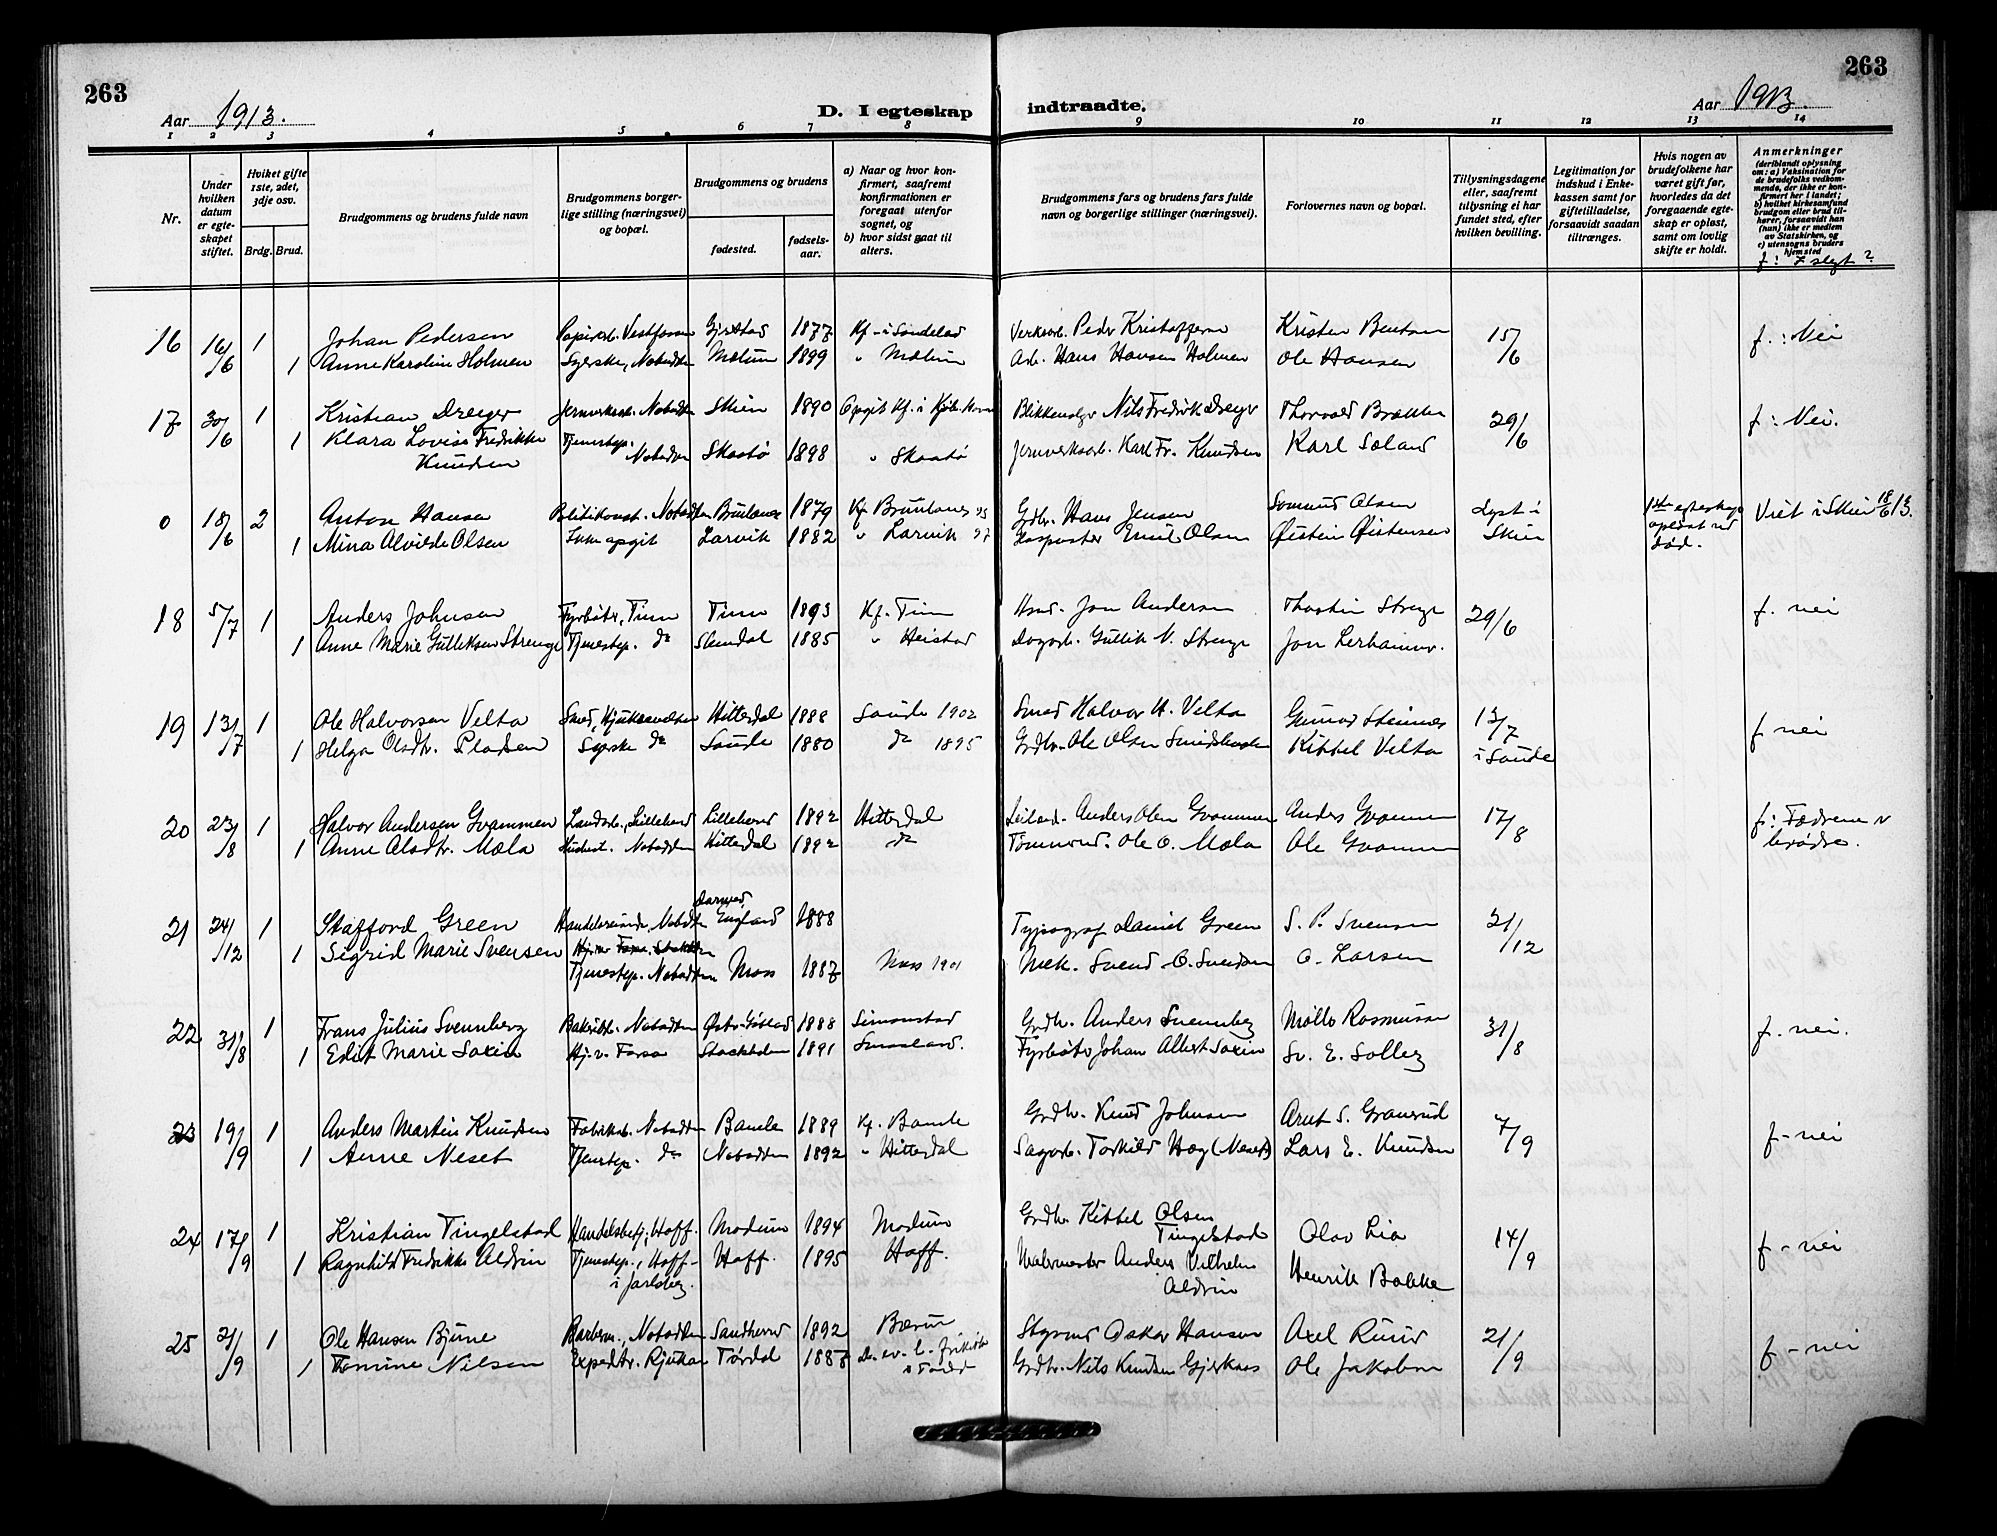 263
Aar 1913.
D. I egteskap indtraadte.
Aar 1913.
263
1 2 3 4 5 6 7 8 9 10 11 12 13 14
Nr.
Under hvilken datum er egteskapet stiftet.
Hviket gifte 1ste, 2det, 3dje osv.
Brdg. Brud.
Brudgommens og brudens fulde navn
Brudgommens borgerlige stilling (næringsvei) og bopæl.
Brudgommens og brudens
fødested.
fødselsaar.
a) Naar og hvor konfirmert, saafremt konfirmationen er foregaat utenfor sognet, og
b) hvor sidst gaat til alters.
Brudgommens fars og brudens fars fulde navn og borgerlige stillinger (næringsvei).
Forlovernes navn og bopæl.
Tillysningsdagene eller, saafremt tillysning ei har fundet sted, efter hvilken bevilling.
Legitimation for indskud i Enkekassen samt for giftetilladelse, forsaavidt saadan tiltrænges.
Hvis nogen av brudefolkene har været gift før, hvorledes da det foregaaende egteskap er opløst, samt om lovlig skifte er holdt.
Anmerkninger
(deriblandt oplysning om: a) Vaksination for de brudefolks vedkommende, der ikke er konfirmert her i landet; b) hvilket kirkesamfund brudgom eller brud tilhører, forsaavidt han (hun) ikke er medlem av Statskirken, og c) utensogns bruders hjemsted
f: I slegt?
16 16/6 1 Johan Pedersen Papirarb. Vestfossen Gjerstad 1877 Kf. i Søndeled Verksarb. Peder Kristoffersen Kristen Bentsen 15/6 f.: Nei
1 Anne Karoline Holmen Syerske, Notodden Mælum 1899 " Mælum Arb. Hans Hansen Holmen Ole Hansen
17 30/6 1 Kristian Dreyer Jernverksarb. Notodden Skien 1890 Opgit Kf. i Kjøbenhavn Nils Fredrik Dreyer Thorvald Brække 29/6 f: Nei.
1 Klara Lovise Fredrikke Knudsen Tjenestep. Notodden Skaatø 1898 " Skaatø Jernverksarb. Karl Fr. Knudsen Karl Søland
0 18/6 2 Anton Hansen Notodden Brunlanes 1879 Kf Brunlanes 95 Grdbr. Hans Jensen Olsen Lyst i Skien 1ste egteskap opløst ved død. Viet i Skien 18/6 13.
1 Mina Alvilde Olsen Ikke opgit Larvik 1882 " Larvik 97 Emil Olsen Øistein Øistensen
18 5/7 1 Anders Johnsen Fyrbøter, Tinn Tinn 1893 Kf. Tinn Jon Andersen Thostin Strenge 29/6 f. nei
1 Anne Marie Gulliksen Strenge Tjenestep. do 1885 " Heistad Dagarb. Gullik N. Strenge Jon Lerhammer.
19 13/7 1 Ole Halvorsen Velta Smed, Hitterdal 1888 Saude 1902 Smed Halvor H. Velta Gunnar Steinnes 13/7 i Saude f nei
1 Helga Olsdtr. Pladsen Syerske do Saude 1880 do 1895 Grdbr. Ole Olsen Kittel Velta
20 23/8 1 Halvor Andersen Gvammen Landarb., Lilleherad Lilleherad 1892 Hitterdal Leiland. Anders Olsen Gvammen Anders Gvammen 17/8 f: Fædrene v brødre.
1 Anne Olsdtr. Mæla Notodden Hitterdal 1892 do Tømmerm. Ole O. Mæla Ole Gvammen
21 24/12 1 Stafford Green Handelsreisende Notodden England 1888 Typograf Daniel Green S. P. Svensen 21/12
1 Sigrid Marie Svensen Tjenestep. Notodden Moss 1887 Moss 1901 Mek. Svend O. Svendsen O. Larsen
22 31/8 1 Frans Julius Svennberg Notodden 1888 Simonstad Grdbr. Anders Svennberg Møller Rasmussen 31/8 f. nei.
1 Edit Marie Saxin Hj. v. Farsa Stockholm 1891 Fyrbøter Johan Albert Saxin Sv. E. Solberg
23 19/9 1 Anders Martin Knudsen Fabrikarb. Notodden Bamle 1889 Kf. Bamle Grdbr. Knud Johnsen Arnt S. Granerud 7/9 f- nei
1 Anne Neset Tjenestep. do Notodden 1892 " Hitterdal Sagarb. Torkild Hæg (Neset) Lars E. Knudsen
24 17/9 1 Kristian Tingelstad Handelsbetj., Hoff. Modum 1894 Modum Grdbr. Kittel Olsen Tingelstad Olav Lia 14/9 f- nei
1 Ragnhild Fredrikke Aldrin Tjenestep., Hoff - i Jarlsberg. Hoff. 1895 Hoff. Malermester Anders Vilhelm Aldrin Henrik Bakke
25 21/9 1 Ole Hansen Bjune Barberer, Notodden Sandherred 1892 Bærum Styrmd Oskar Hansen Axel Ruud 21/9 f- nei
1 Tomine Nilsen Expeditr. Rjukan Tørdal 1888 Grdbr. Nils Knudsen Gjerkaas Ole Jakobsen